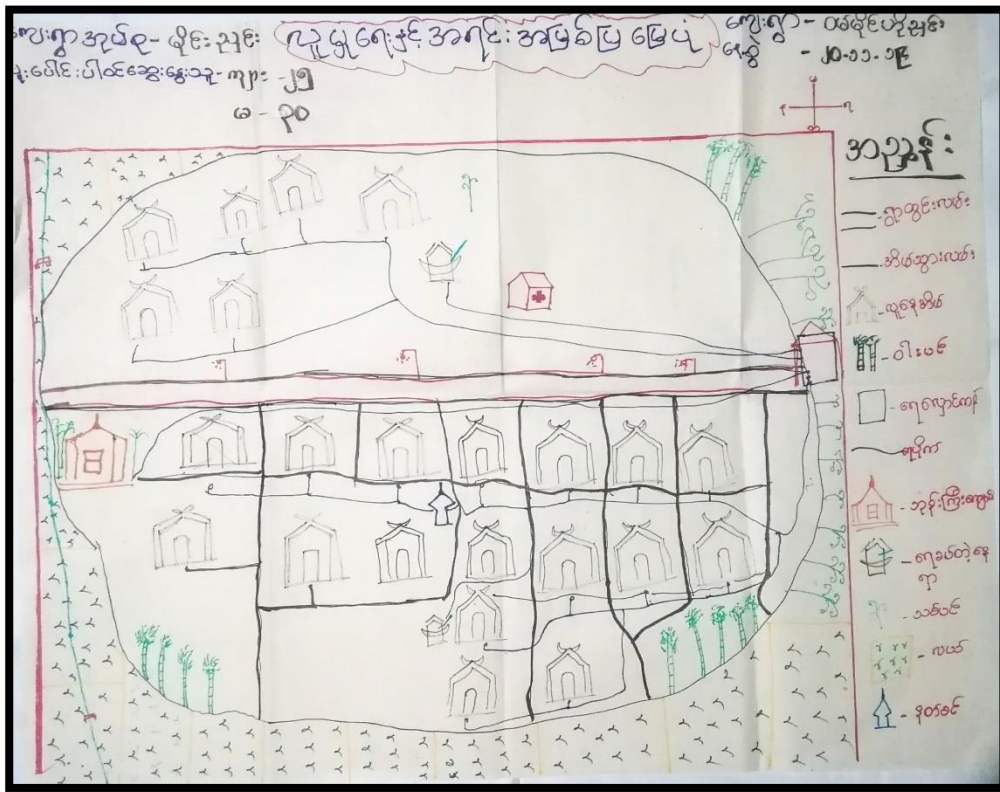 ကျေးရွာအုပ်စု - မိုင်းညှင်း
လူမှုရေးနှင့် အရင်းအမြစ်ပြ မြေပုံ
ကျေးရွာ -
နေ့စွဲ - ၂၀-၁၁-၁၉
စုပေါင်းပါဝင်ဆွေးနွေးသူ - ကျား - ၂၅
မ - ၃၀
အညွှန်း
ရွာတွင်းလမ်း
အိမ်သွားလမ်း
လူနေအိမ်
- ဝါးပင်
- ရေလှောင်ကန်
ရေပိုက်
ဘုန်းကြီးကျောင်း
ရေခပ်တဲ့နေ
ရာ
- သစ်ပင်
- လယ်
- နတ်စင်